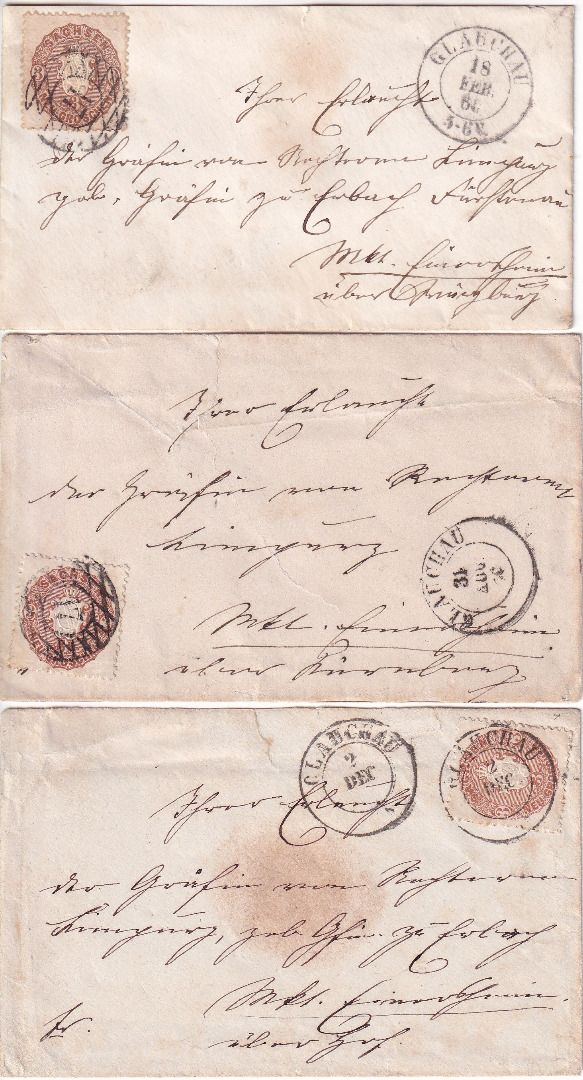 GLAUCHAU
18
FEB.
66
5-6 V.
Ihrer Erlaucht
der Gräfin von Rechteren Limpurg
geb. Gräfin zu Erbach Fürstenau
Mkt. Einersheim
über Würzburg
Ihrer Erlaucht
der Gräfin von Rechteren
Limpurg
GLAUCHAU
31
AUG
Mkt. Einersheim
über Nürnberg
GLAUCHAU
2
DEC
GLAUCHAU
2
DEC
Ihrer Erlaucht
der Gräfin von Rechteren
Limpurg, geb. Gfin. zu Erbach
Mkt. Einersheim.
fr.
über Hof.